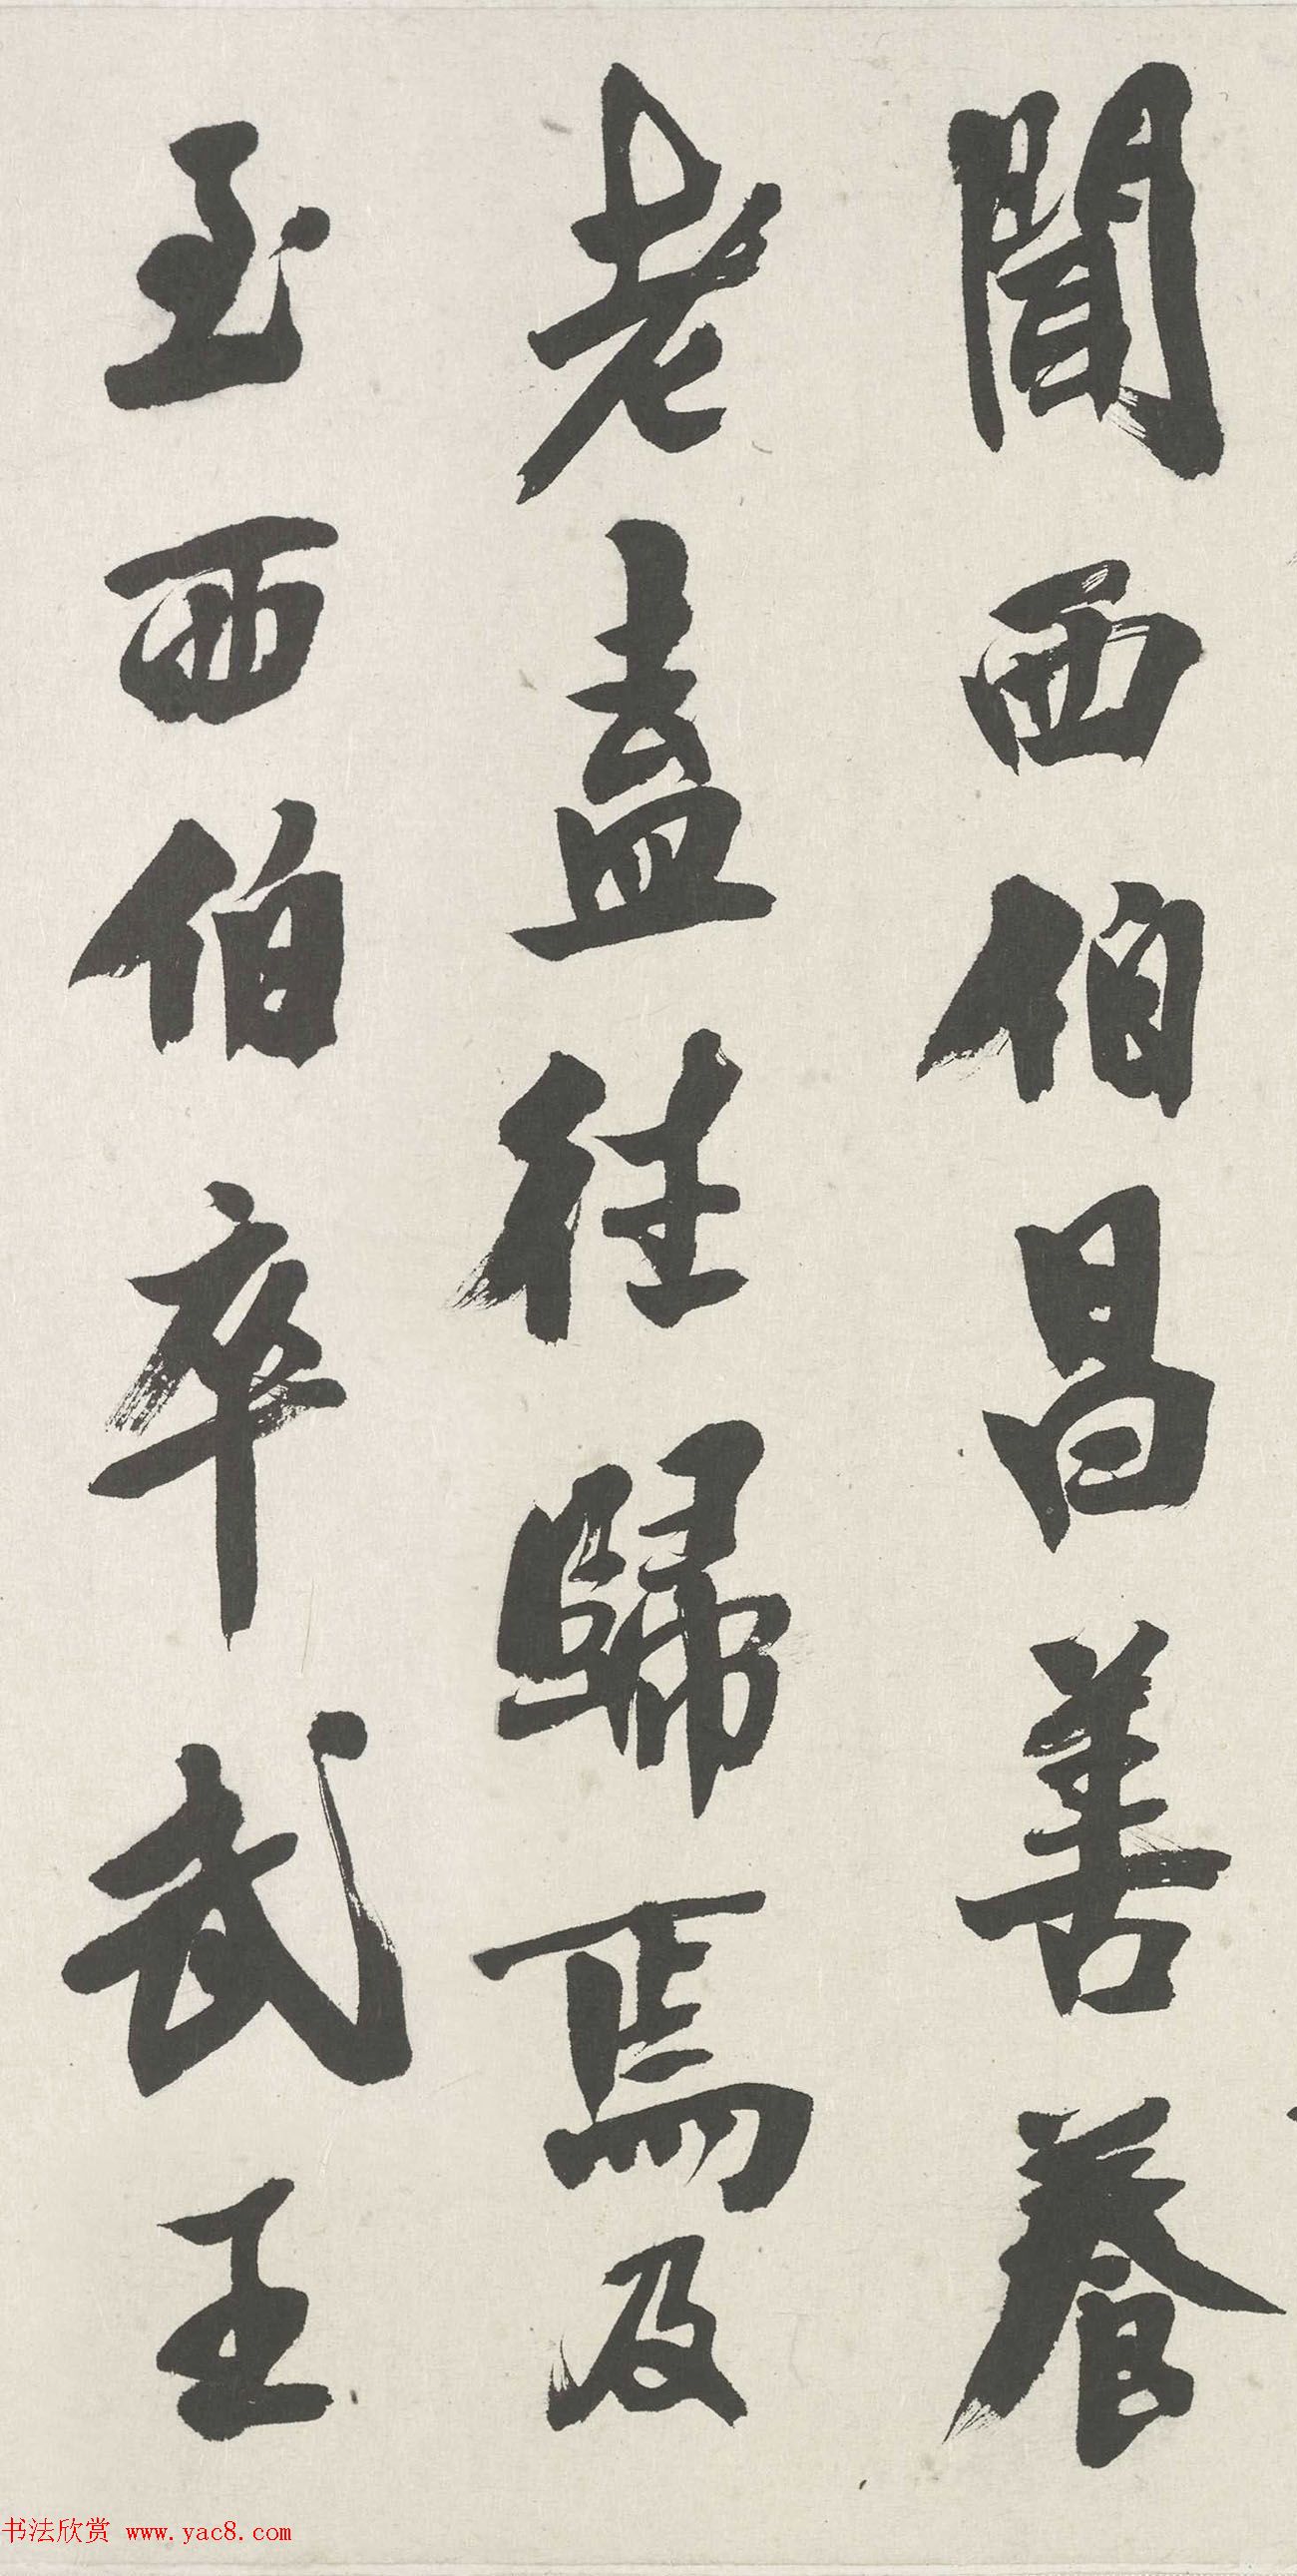 聞西伯昌善養
老盍往歸焉及
至西伯卒武王
书法欣赏 www.yac8.com